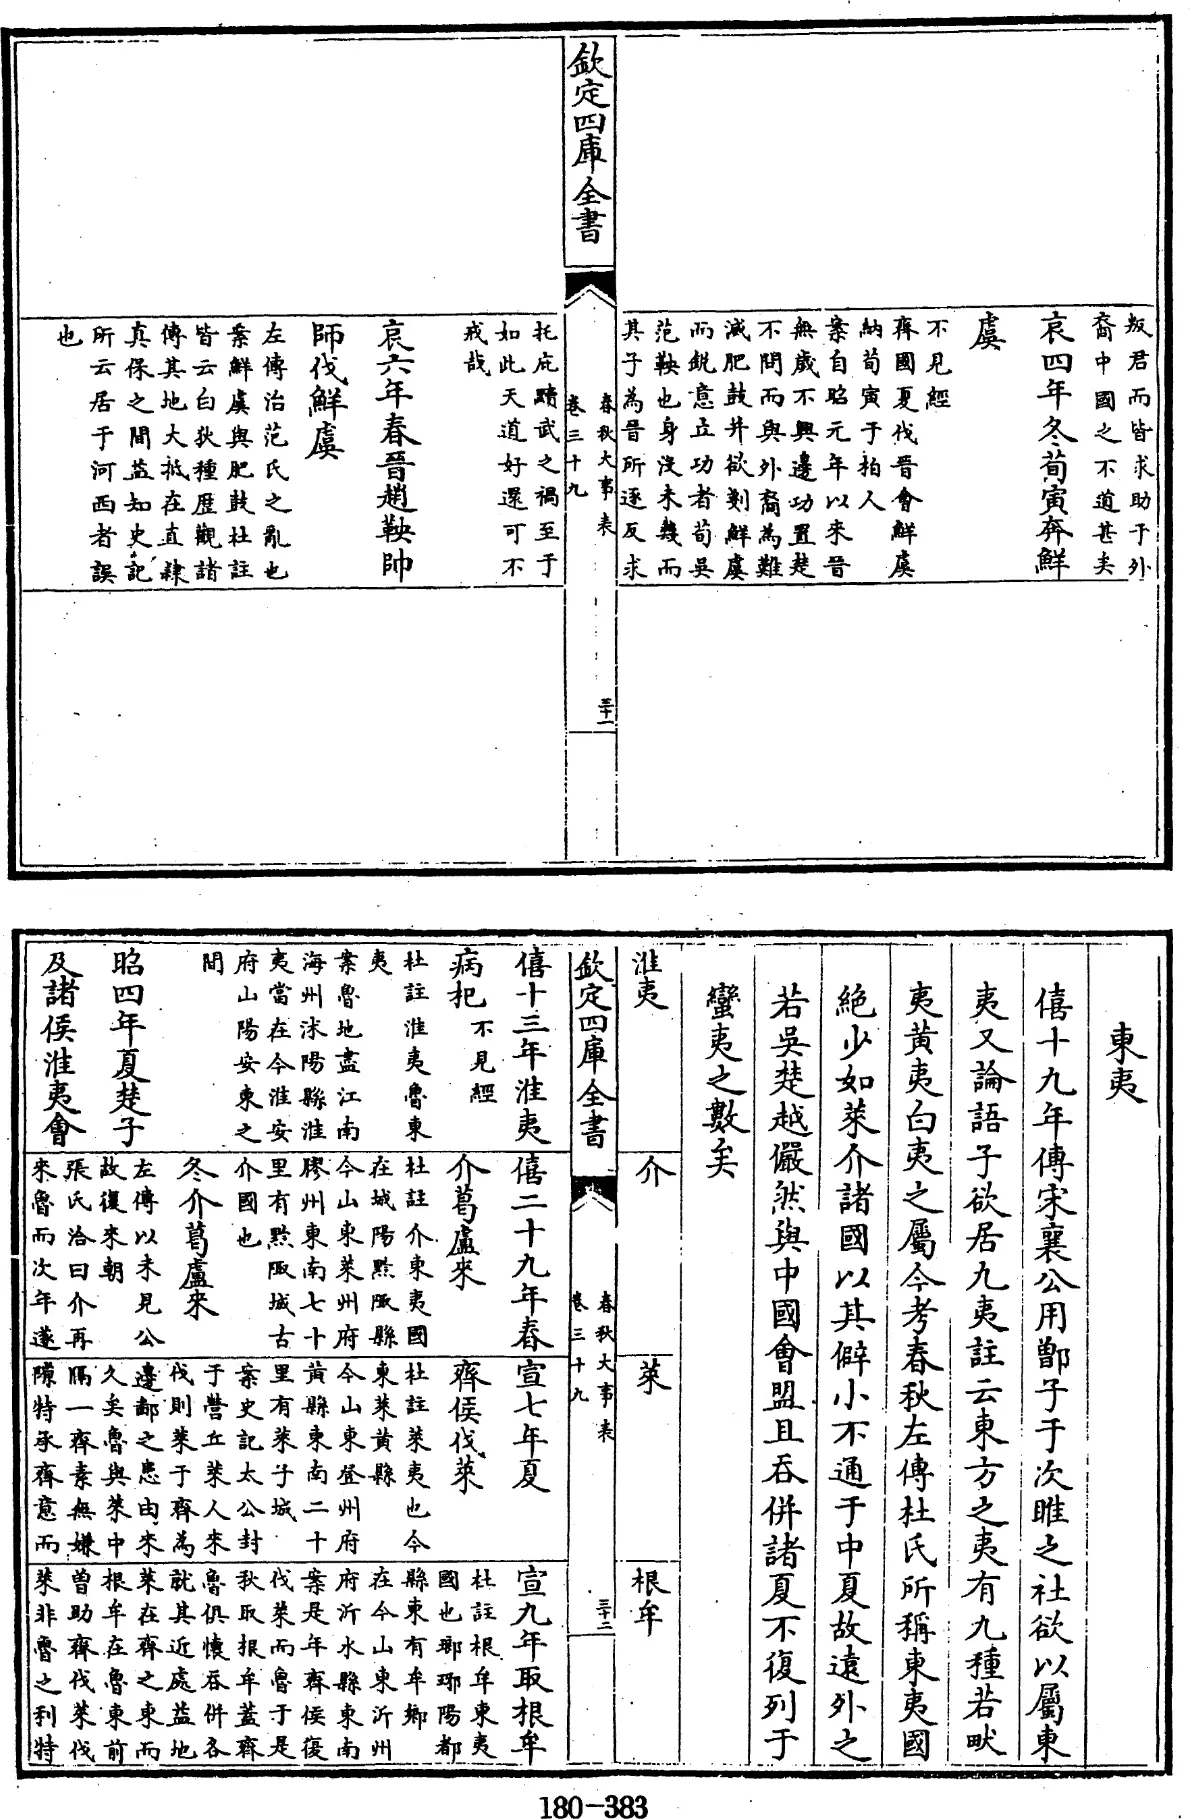 叛君而皆求助于外
裔中國之不道甚矣
哀四年冬荀寅奔鮮
虞
不見經
齊國夏伐晉會鮮虞
納荀寅于柏人
案自昭元年以來晉
無歲不興邊功置楚
不問而與外裔為難
滅肥鼓并欲剗鮮虞
而銳意立功者荀吳
范鞅也身沒未幾而
其子為晉所逐反求
欽定四庫全書
春秋大事表
卷三十九
三十一
托庇黷武之禍至于
如此天道好還可不
戒哉
哀六年春晉趙鞅帥
師伐鮮虞
左傳治范氏之亂也
案鮮虞與肥鼓杜註
皆云白狄種歷觀諸
傳其地大抵在直隸
真保之間益知史記
所云居于河西者誤
也
東夷
僖十九年傳宋襄公用鄫子于次睢之社欲以屬東
夷又論語子欲居九夷註云東方之夷有九種若畎
夷黃夷白夷之屬今考春秋左傳杜氏所稱東夷國
絕少如萊介諸國以其僻小不通于中夏故遠外之
若吳楚越儼然與中國會盟且吞併諸夏不復列于
蠻夷之數矣
淮夷
介
萊
根牟
欽定四庫全書
春秋大事表
卷三十九
三十二
僖十三年淮夷
病杞不見經
杜註淮夷魯東
夷
案魯地盡江南
海州沭陽縣淮
夷當在今淮安
府山陽安東之
間
昭四年夏楚子
及諸侯淮夷會
僖二十九年春
介葛盧來
杜註介東夷國
在城陽黔陬縣
今山東萊州府
膠州東南七十
里有黔陬城古
介國也
冬介葛盧來
左傳以未見公
故復來朝
張氏洽曰介再
來魯而次年遂
宣七年夏
齊侯伐萊
杜註萊夷也今
東萊黃縣
今山東登州府
黃縣東南二十
里有萊子城
案史記太公封
于營丘萊人來
伐則萊于齊為
邊鄙之患由來
久矣魯與萊中
隔一齊素無嫌
隙特承齊意而
宣九年取根牟
杜註根牟東夷
國也瑯琊陽都
縣東有牟鄉
在今山東沂州
府沂水縣東南
案是年齊侯復
伐萊而魯于是
秋取根牟蓋齊
魯俱懷吞併各
就其近處益地
萊在齊之東而
根牟在魯東前
曾助齊伐萊伐
萊非魯之利特
180-383